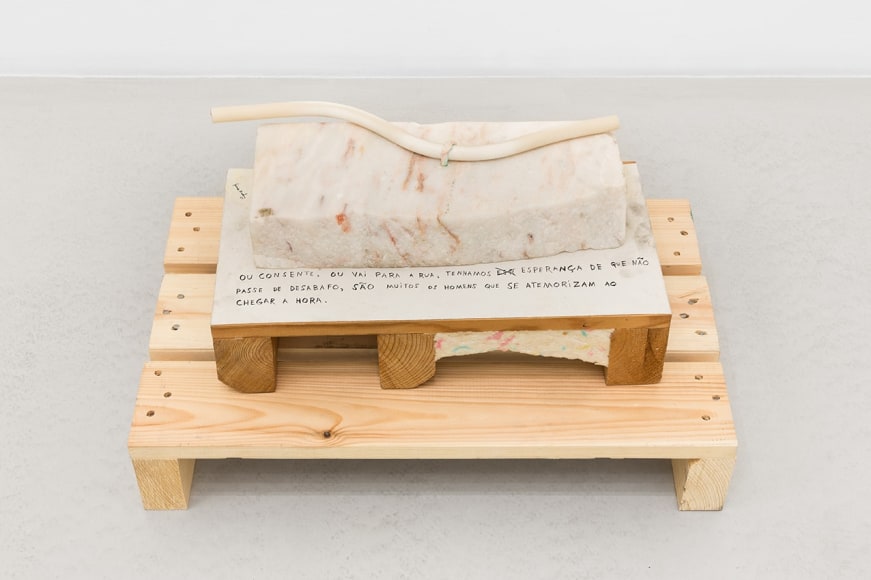 OU CONSENTE, OU VAI PARA A RUA, TENHAMOS ESPERANÇA DE QUE NÃO
PASSE DE DESABAFO, SÃO MUITOS OS HOMENS QUE SE ATEMORIZAM AO
CHEGAR A HORA.